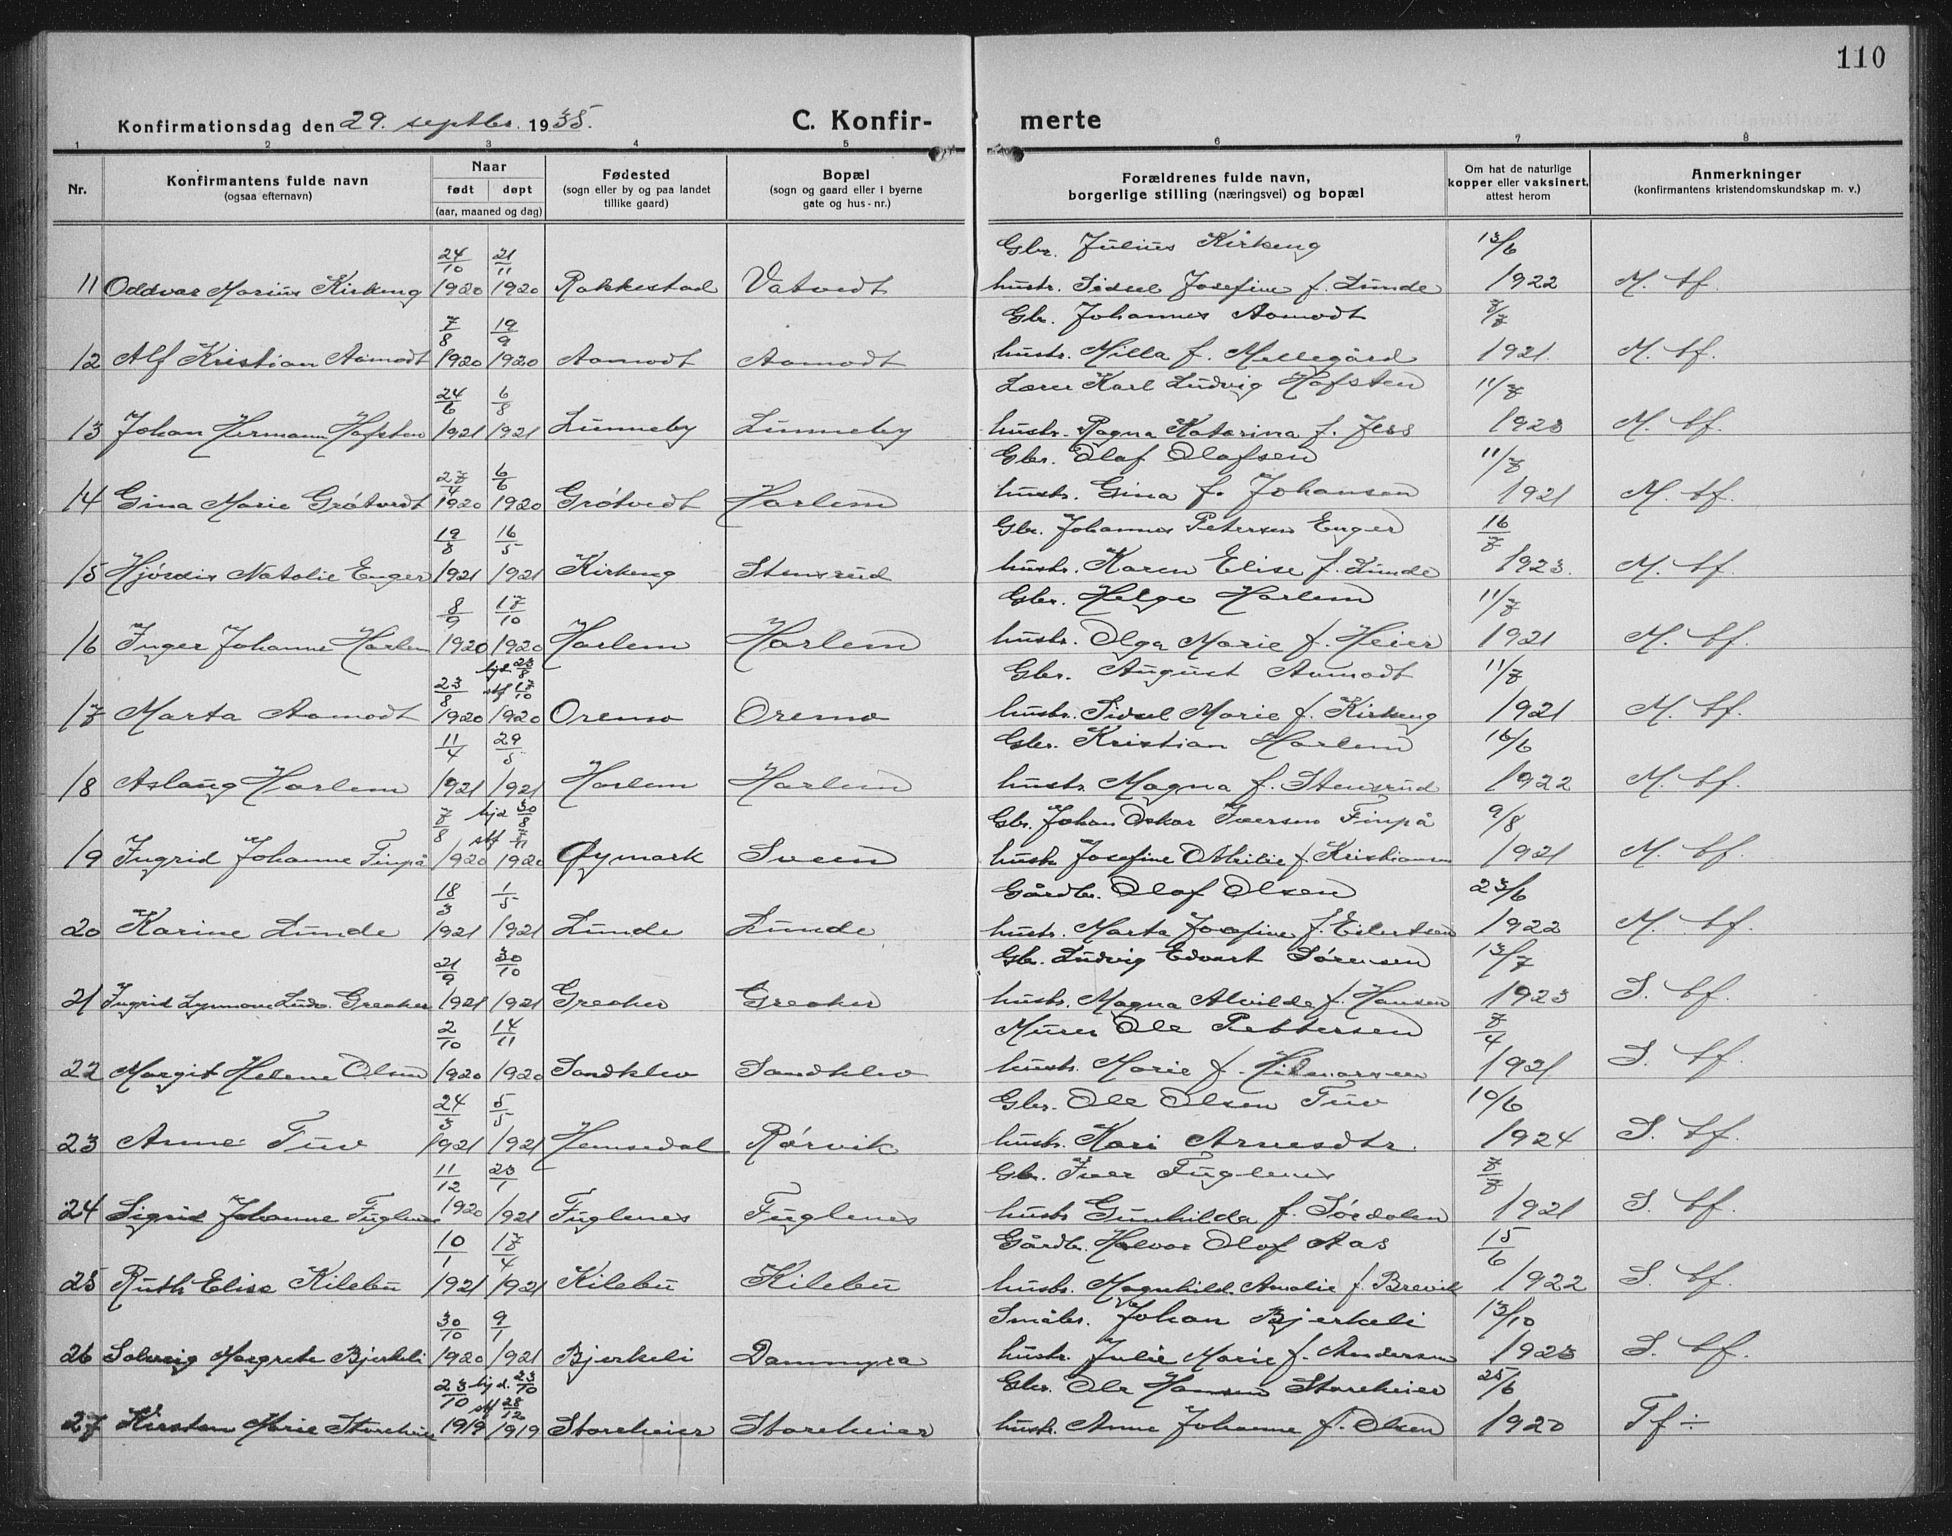 110
Konfirmationsdag den 29. septbr. 1935. C. Konfir- merte
1 2 3 4 5 6 7 8
Nr. Konfirmantens fulde navn (ogsaa efternavn) Naar født døpt (aar, maaned og dag) Fødested (sogn eller by og paa landet tillike gaard) Bopæl (sogn og gaard eller i byerne gate og hus-nr.) Forældrenes fulde navn, borgerlige stilling (næringsvei) og bopæl Om hat de naturlige kopper eller vaksinert, attest herom Anmerkninger (konfirmantens kristendomskundskap m. v.)
24/10 21/11 Gbr. Julius Kirkeng 13/6
11 Oddvar Marius Kirkeng 1920 1920 Rakkestad Vatvedt hustr. Sidsel Josefine f. Lunde 1922 M. tf.
7/8 19/9 Gbr. Johannes Aamodt 7/7
12 Alf Kristian Aamodt 1920 1920 Aamodt Aamodt hustr. Milla f. Mellegård 1921. M. tf.
24/6 6/8 Lærer Karl Ludvig Hofsten 11/7
13 Johan Hermann Hofsten 1921 1921 Lunneby Lunneby hustr. Ragna Katarina f. Jess 1923 M. tf.
27/4 6/6 Gbr. Olaf Olafsen 11/7
14 Gina Marie Grøtvedt 1920 1920 Grøtvedt Harlem hustr. Gina f. Johansen 1921 M. tf.
19/3 16/5 Gbr. Johannes Petersen Enger 16/7
15 Hjørdis Natalie Enger 1921 1921 Kirkeng Stensrud hustr. Karen Elise f. Lunde 1923. M. tf.
8/9 17/10 Gbr. Helge Harlem 11/7
16 Inger Johanne Harlem 1920 1920 Harlem Harlem hustr. Olga Marie f. Heier 1921 M. tf.
23/8 hjd. 23/8 stf 17/10 Gbr. August Aamodt 11/7
17 Marta Aamodt 1920 1920 Oremo Oremo hustr. Sidsel Marie f. Kirkeng 1921 M. tf.
11/4 29/5 Gbr. Kristian Harlem 16/6
18 Aslaug Harlem 1921 1921 Harlem Harlem hustr. Magna f. Stensrud 1922 M. tf.
7/8 hjd 30/8 stf 7/11 Gbr. Johan Oskar Iversen Finpå 9/8
19 Ingrid Johanne Finpå 1920 1920 Øymark Sveen hustr. Josefine Otilie f. Kristiansen 1921 M. tf
18/3 1/5 Gårdbr. Olaf Olsen 23/6
20 Karine Lunde 1921 1921 Lunde Lunde hustr. Marta Josefine f. Eilertsen 1922 M. tf.
21/9 30/10 Gbr. Ludvig Edvart Sørensen 13/7
21 Ingrid Ludv. Greaker 1921 1921 Greaker Greaker hustr. Magna Alvilde f. Hansen 1923 S. tf.
2/10 14/11 Murer Ole Pettersen 7/4
22 Margit Helene Olsen 1920 1920 Sandklev Sandklev hustr. Marie f. Hilmarsen 1921 S. tf.
24/3 5/5 Gbr. Ole Olsen Tuv 10/6
23 Anne Tuv 1921 1921 Hemsedal Rørvik hustr. Kari Arnesdtr. 1924 S. tf.
11/12 23/1 Gbr. Iver Fuglenes 7/7
24 Sigrid Johanne Fuglenes 1920 1921 Fuglenes Fuglenes hustr Gunhilda f. Sørdalen 1921 S. tf.
10/1 17/4 Gårdbr. Halvor Olof Aas 15/6
25 Ruth Elise Kilebu 1921 1921 Kilebu Kilebu hustr. Magnhild Amalie f. Brevik 1922 S. tf.
30/10 9/1 Småbr. Johan Bjerkeli 13/10
26 Solveig Margrete Bjerkeli 1920 1921 Bjerkeli Dammyra hustr. Julie Marie f. Andersen 1923 S. tf.
23/10 hjd. 23/10 stf 28/12 Gbr. Ole Hansen Storeheier 25/6
27 Kirsten Marie Storeheier 1919 1919 Storeheier Storeheier hustr. Anne Johanne f. Olsen 1920 Tf ÷